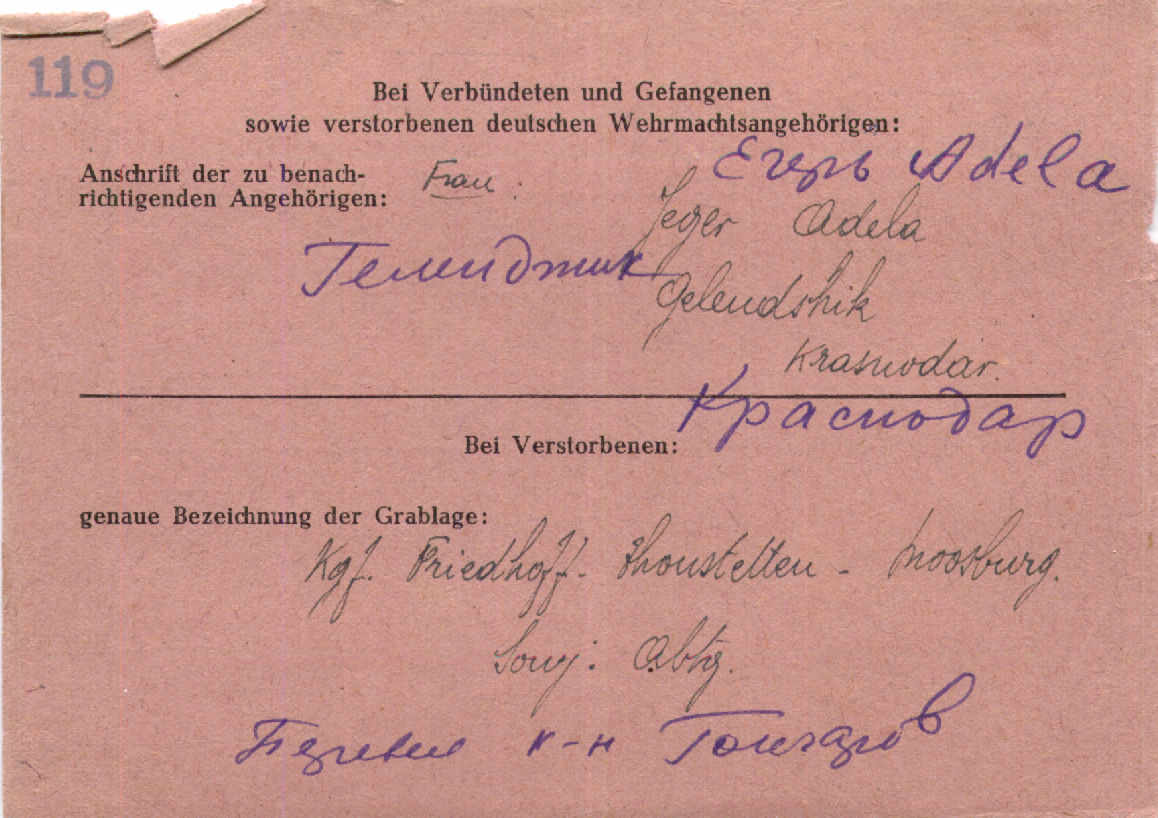 119
Bei Verbündeten und Gefangenen
sowie verstorbenen deutschen Wehrmachtsangehörigen:
Егерь Adela
Anschrift der zu benach-
richtigenden Angehörigen:
Frau.
Jeger Adela
Геленджик
Gelendshik
Krasnodar.
Краснодар
Bei Verstorbenen:
genaue Bezeichnung der Grablage:
Kgf. Friedhoff. Thonstetten - Moosburg.
Sowj. Abtg.
к-н Гончаров